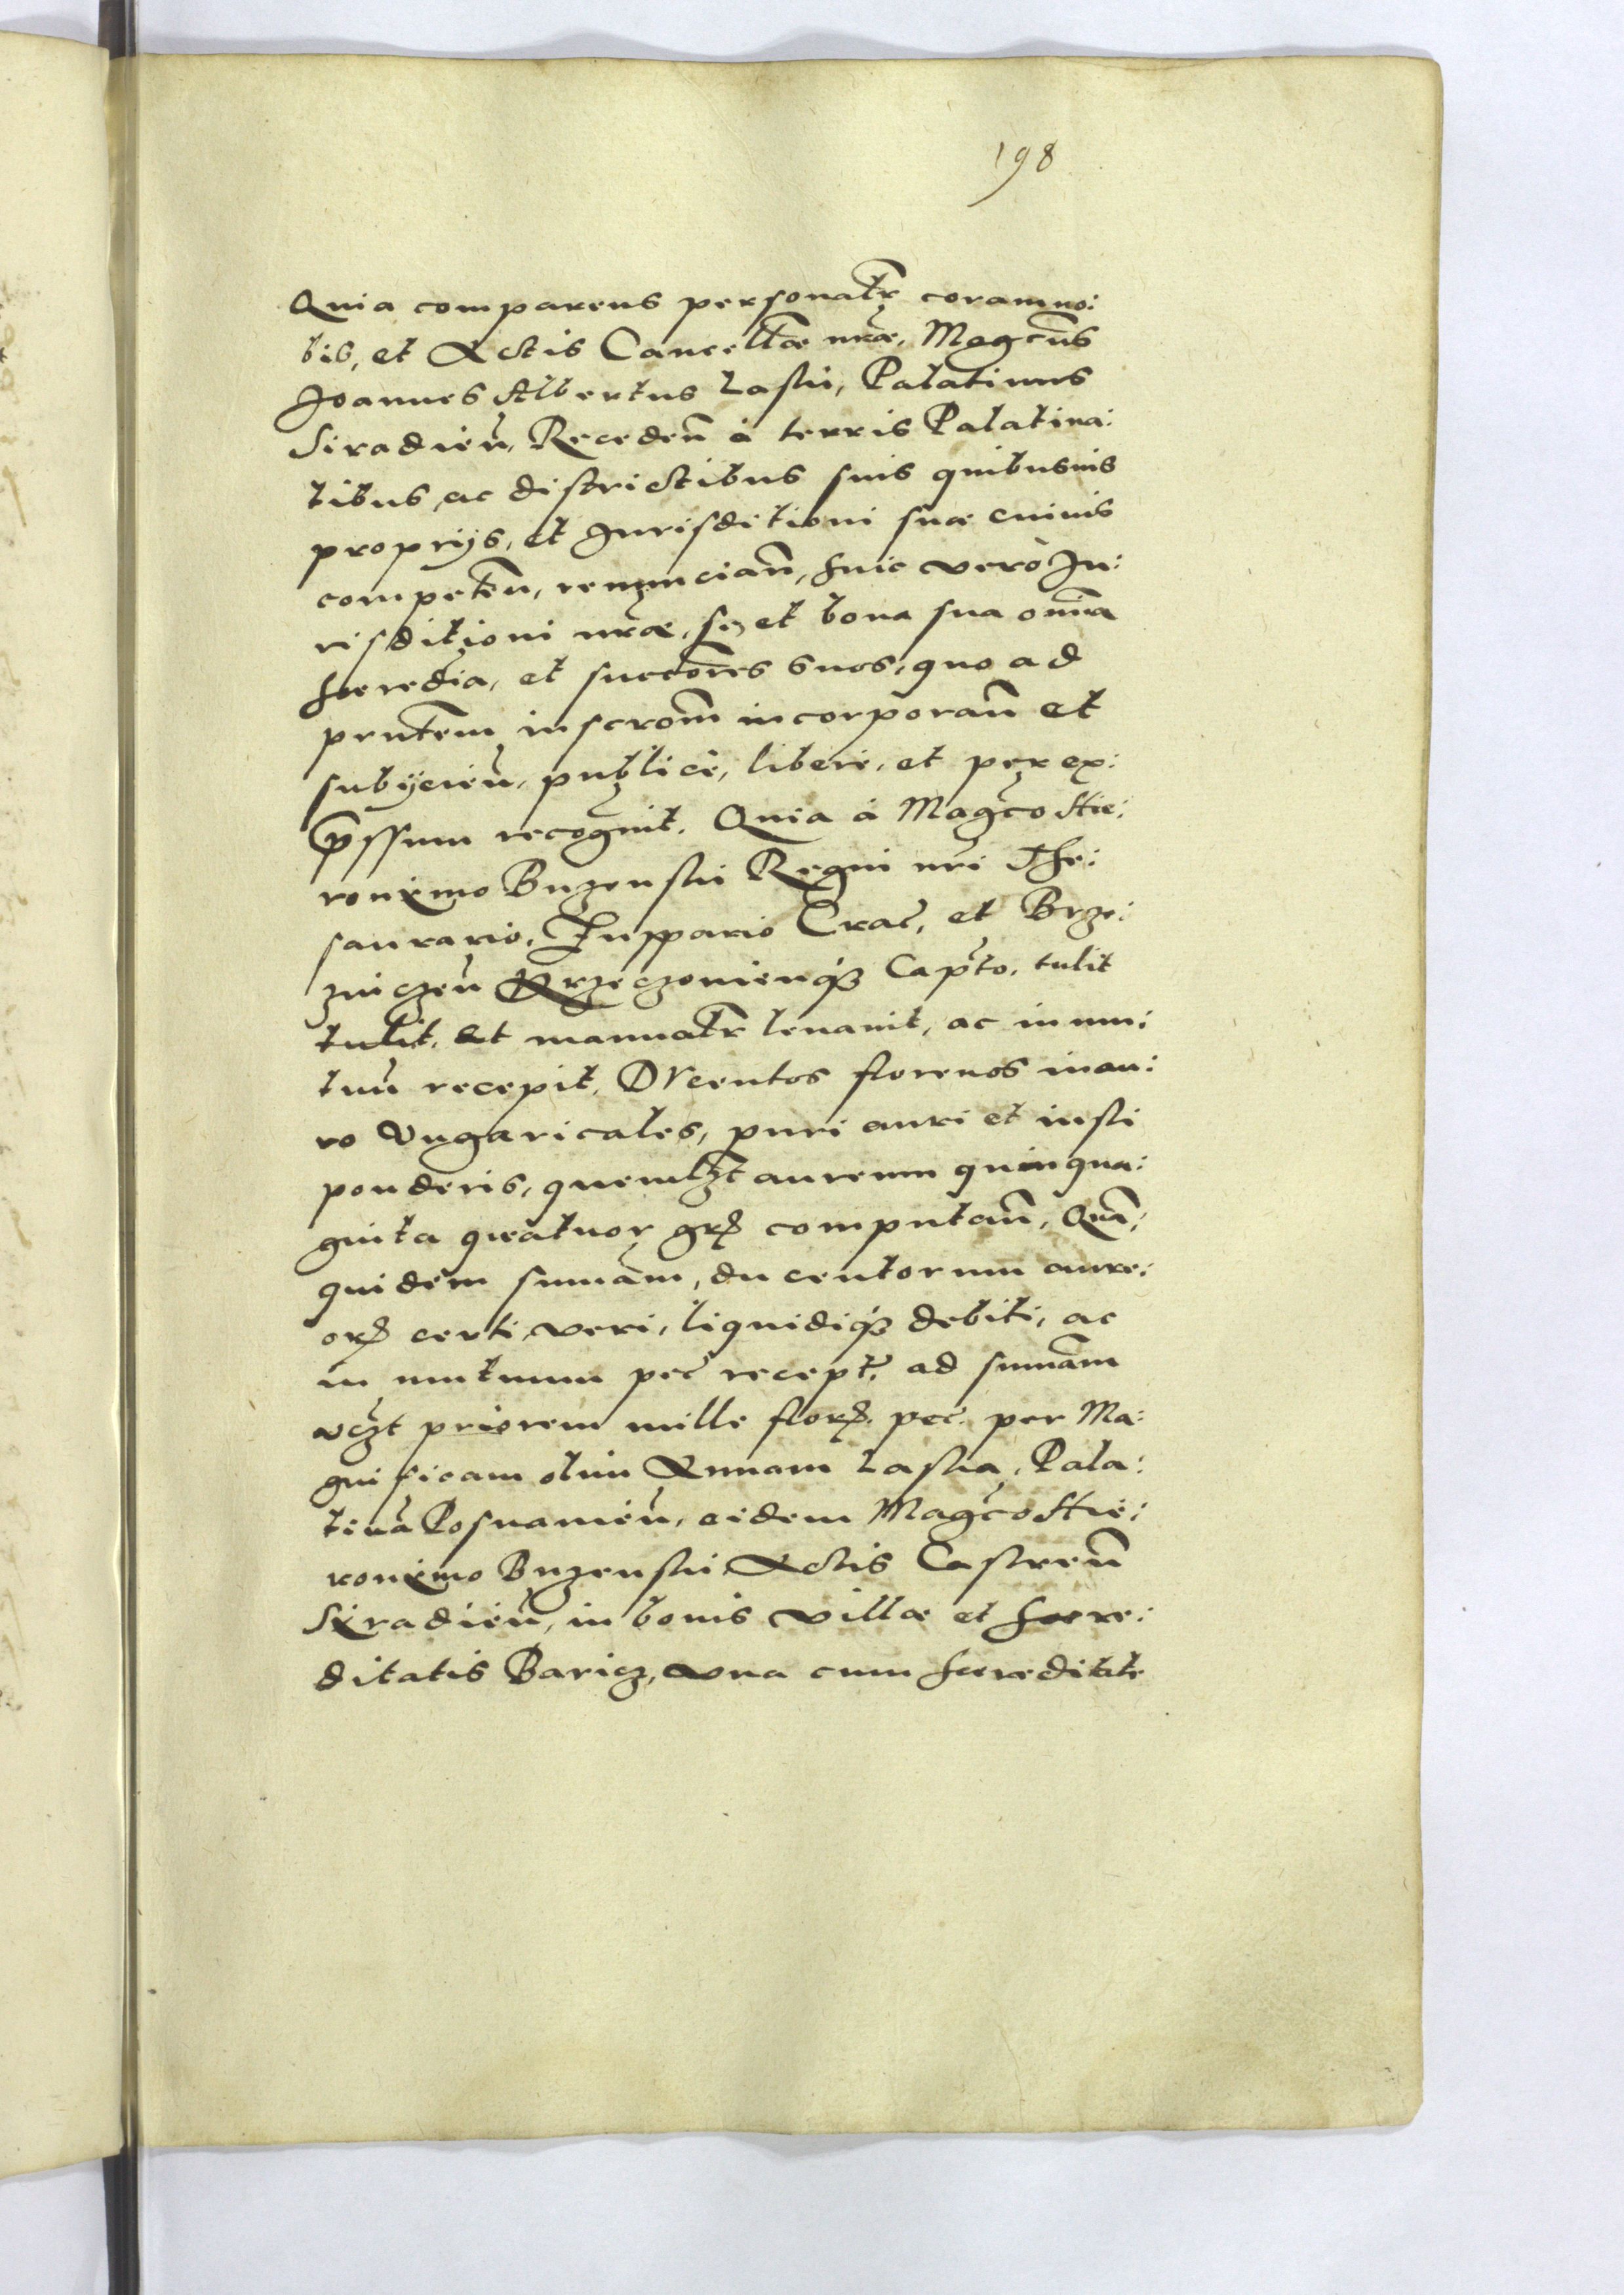 198
Quia comparens personatr̃ coram no:
bis, et Actis Cancellꝛ̃æ nr̃æ, Magcũs
Joannes Albertus Laski, Palatinus
Siradieñ, Recedeñ à terris Palatina:
tibus, ac districtibus suis quibusuis
proprijs, et Jurisditioni suæ cuiuis
competeñ, renunciañ, huic verò Ju:
risditioni nr̃æ, se, et bona sua om̃ia
hæredia, et succõres suos, quo ad
prñtem inscrõm incorporañ et
subijcieñ, publicè, liberè, et per ex:
p̃ssum recognuit. Quia à Magc̃o Hie:
ronimo Buzenski Regni nr̃i The:
saurario, Zuppario Crac̃, et Brze:
zniczeñ Krzeczouienq́ꝫ Capt̃o, tulit
tulit, et manuatr̃ leuauit, ac in mu:
tuũ recepit, DVcentos florenos in au:
ro Vngaricales, puri auri et iusti
ponderis, quemlꝫt aureum quinqua:
ginta quatuor grꝭ computañ, Quã:
quidem sum̃am, ducentorum aure:
orꝭ certi, veri, liquidiq́ꝫ debiti, ac
in mutuum pec̃ recept̃, ad sum̃am
vcꝫt priorem mille florꝭ. pec̃. per Ma:
gnificam olim Annam Laska, Pala:
tinã Posnanieñ, eidem Magc̃o Hie:
ronimo Buzenski Actis Castreñ
Siradieñ, in bonis villæ et hære:
ditatis Baricz, vna cum hæreditate